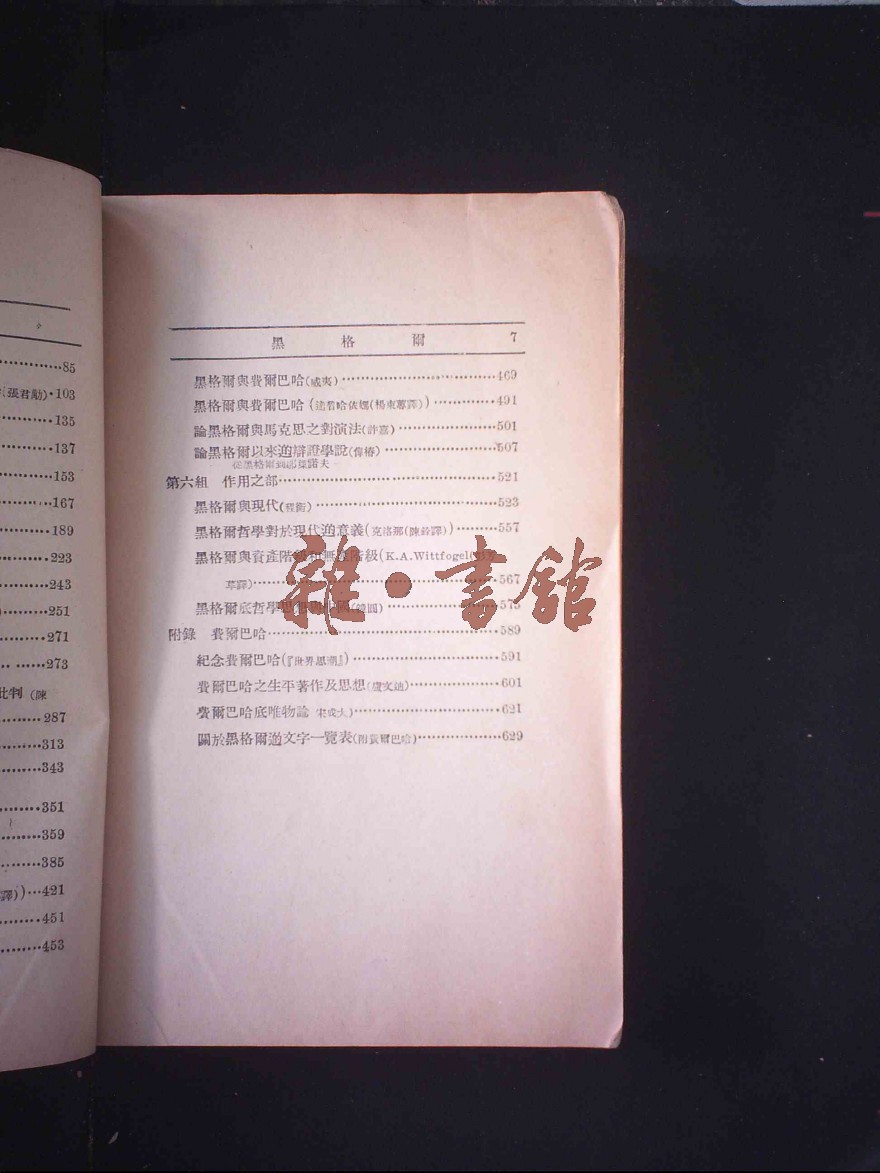 85
(張君勱)·103
135
137
153
167
189
223
243
251
271
273
批判 (陳
287
313
343
351
359
385
譯))…421
451
453
黑格爾 7
黑格爾與費爾巴哈(威夷)…469
黑格爾與費爾巴哈 (達若哈依娜(楊東蓴譯))…491
論黑格爾與馬克思之對演法(許嘉)…501
論黑格爾以來逎辯證學說(偉椿)…507
從黑格爾到
第六組 作用之部…521
黑格爾與現代(程衡)…523
黑格爾哲學對於現代逎意義(克洛那(陳銓譯))…557
黑格爾與資產階級和無產階級(K.A.Wittfogel
草譯)…567
黑格爾底哲學思想與中國(鏡園)…575
附錄 費爾巴哈…589
紀念費爾巴哈(『世界思潮』)…591
費爾巴哈之生平著作及思想(盧文迪)…601
費爾巴哈底唯物論 宋成大)…621
關於黑格爾逎文字一覽表(附費爾巴哈)…629
雜·書館